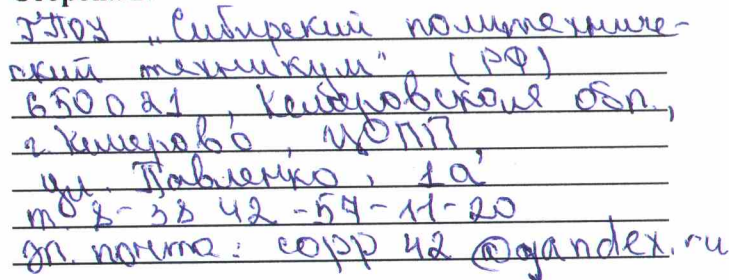 ГПОУ „Сибирский политехниче-
ский техникум" (РФ)
650021, Кемеровская обл.,
г. Кемерово, ЦОПП,
ул. Павленко, 1а,
т. 8-3842-57-11-20
эл. почта: copp42@yandex.ru